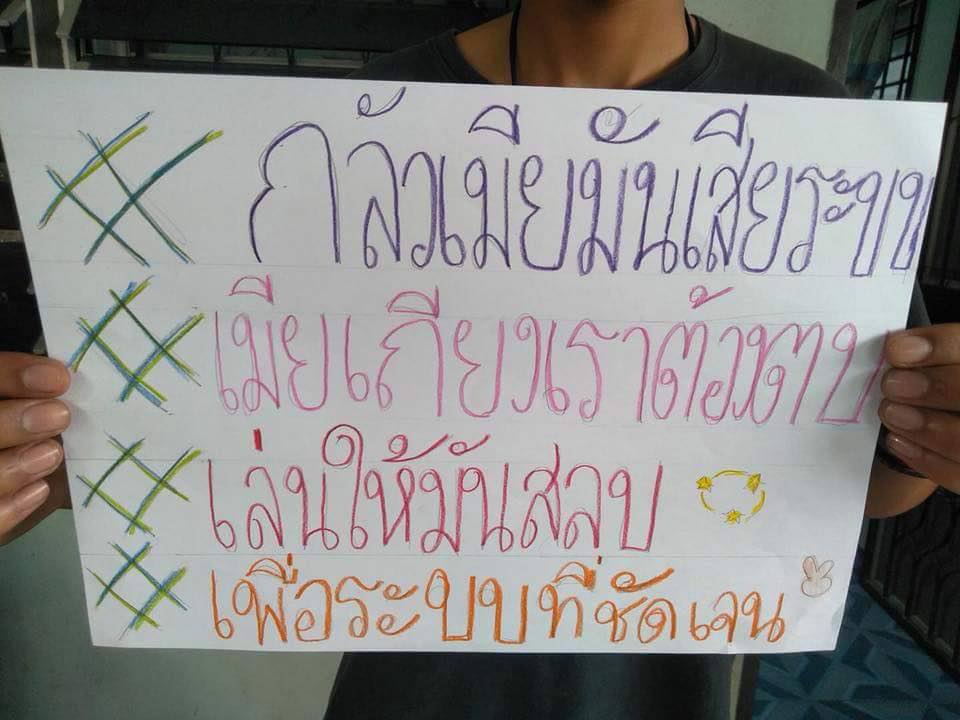 กลัวเมียมันเสียระบบ
เมียเถียงเราต้องตบ
เล่นให้มันสลบ
เพื่อระบบที่ชัดเจน